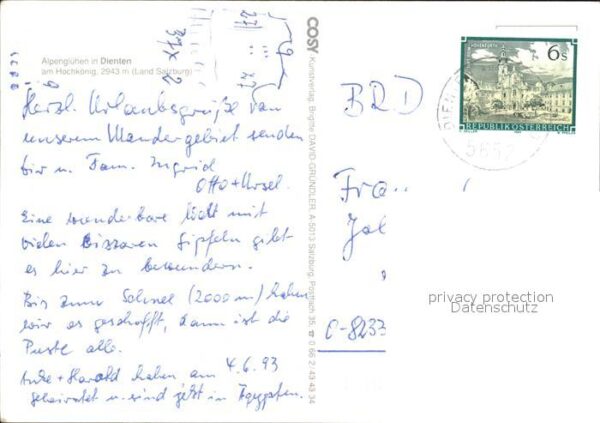 Alpenglühen in Dienten
am Hochkönig, 2943 m (Land Salzburg)
Herzl. Urlaubsgrüße von
unserem Wandergebiet senden
wir u. Fam. Ingrid
Otto + Ursel.
Eine wunderbare Welt mit
vielen bizzaren Gipfeln gibt
es hier zu bewundern.
Bis zum Schnee (2000 m) haben
wir es geschafft, dann ist die
Puste alle.
Anke + Harald haben am 4.6.93
geheiratet u. sind jetzt in Ägypten.
COSY Kunstverlag, Brigitte DAVID-GRÜNDLER, A-5013 Salzburg, Postfach 35, ☎ 0 66 2/43 43 34
6 S
REPUBLIK ÖSTERREICH
DIEN
5652
BRD
Fra
O-8233
privacy protection
Datenschutz